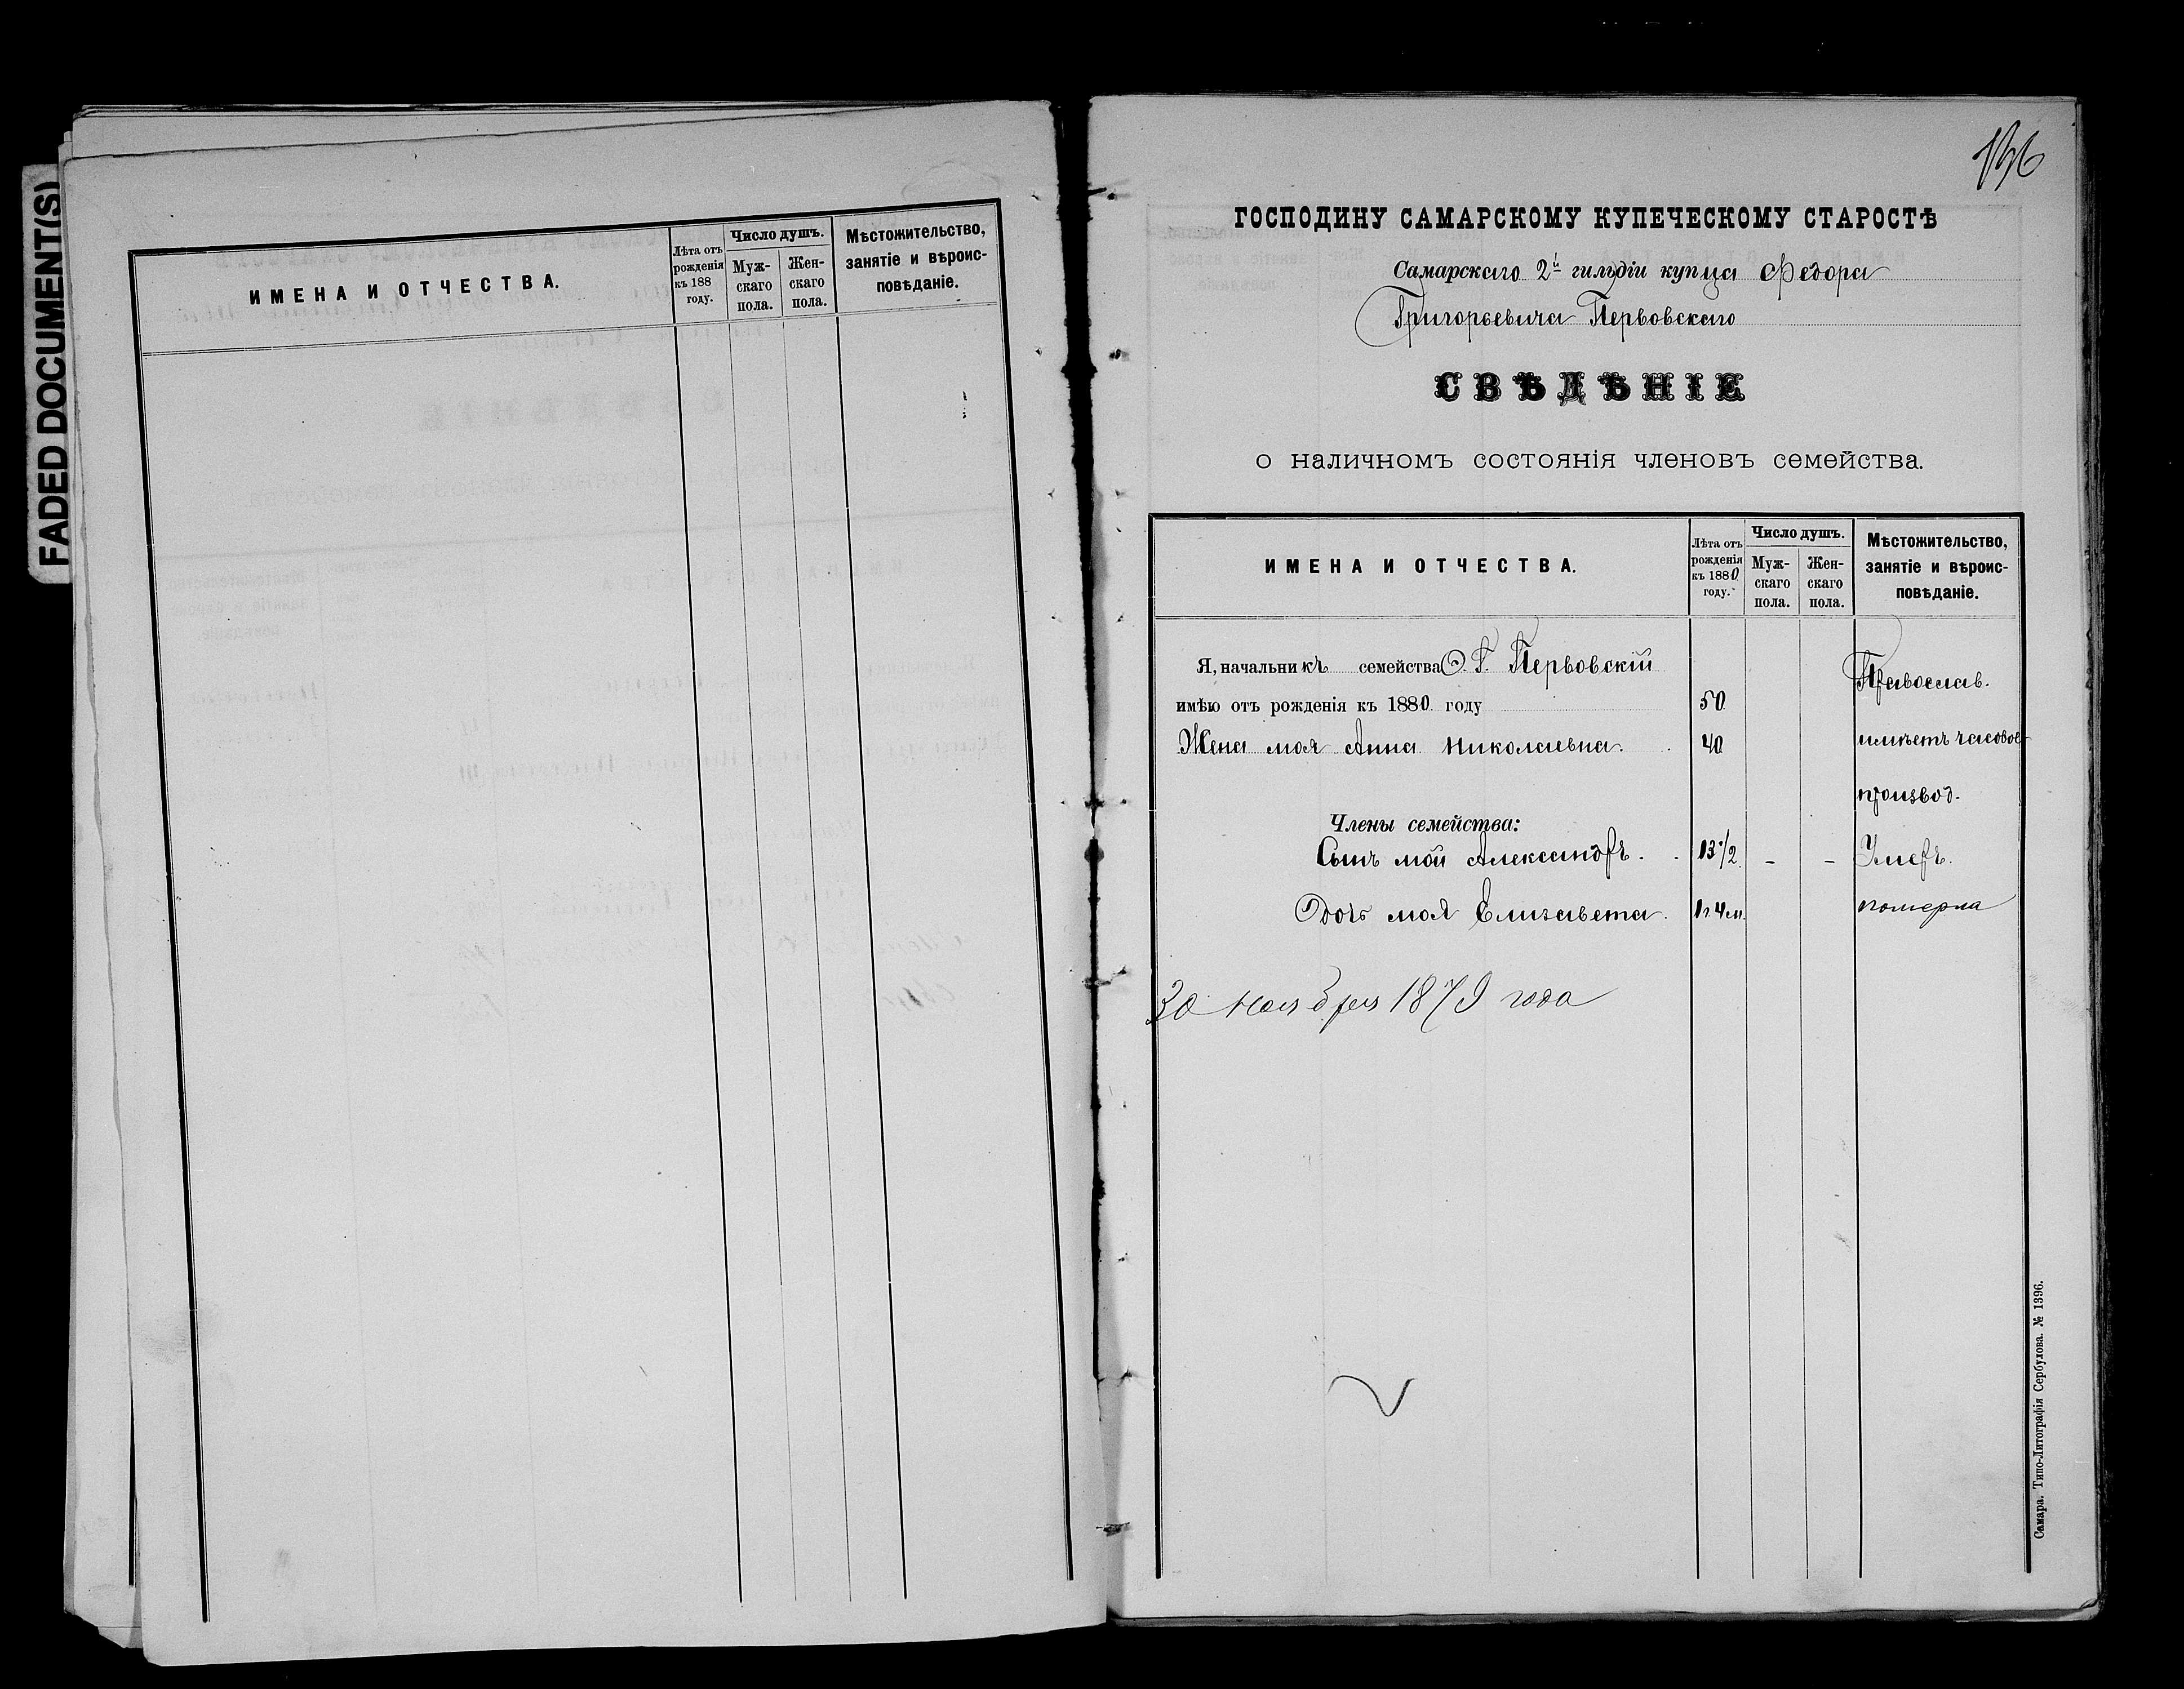 FADED DOCUMENT(S)
ИМЕНА И ОТЧЕСТВА.
Лѣта отъ рожденія къ 188 году.
Число душъ.
Мужскаго пола.
Женскаго пола.
Мѣстожительство, занятіе и вѣроисповѣданіе.
ГОСПОДИНУ САМАРСКОМУ КУПЕЧЕСКОМУ СТАРОСТѢ
Самарскаго 2й гильдіи купца Федора
Григорьевича Перовскаго
СВѢДѢНІЕ
о наличномъ состоянія членовъ семейства.
ИМЕНА И ОТЧЕСТВА.
Лѣта отъ рожденія къ 1880 году.
Число душъ.
Мужскаго пола.
Женскаго пола.
Мѣстожительство, занятіе и вѣроисповѣданіе.
Я, начальникъ семейства Ѳ. Г. Первовскій
Православ.
имѣю отъ рожденія къ 1880 году 50
Жена моя Анна Николаевна. 40 имѣетъ часовое
производ.
Члены семейства:
Сынъ мой Александръ. 13 1/2 - - Умеръ.
Дочь моя Елизавета. 1 г. 4 м. померла
30 ноября 1879 года
Самара. Типо-Литографія Сербулова. № 1396.